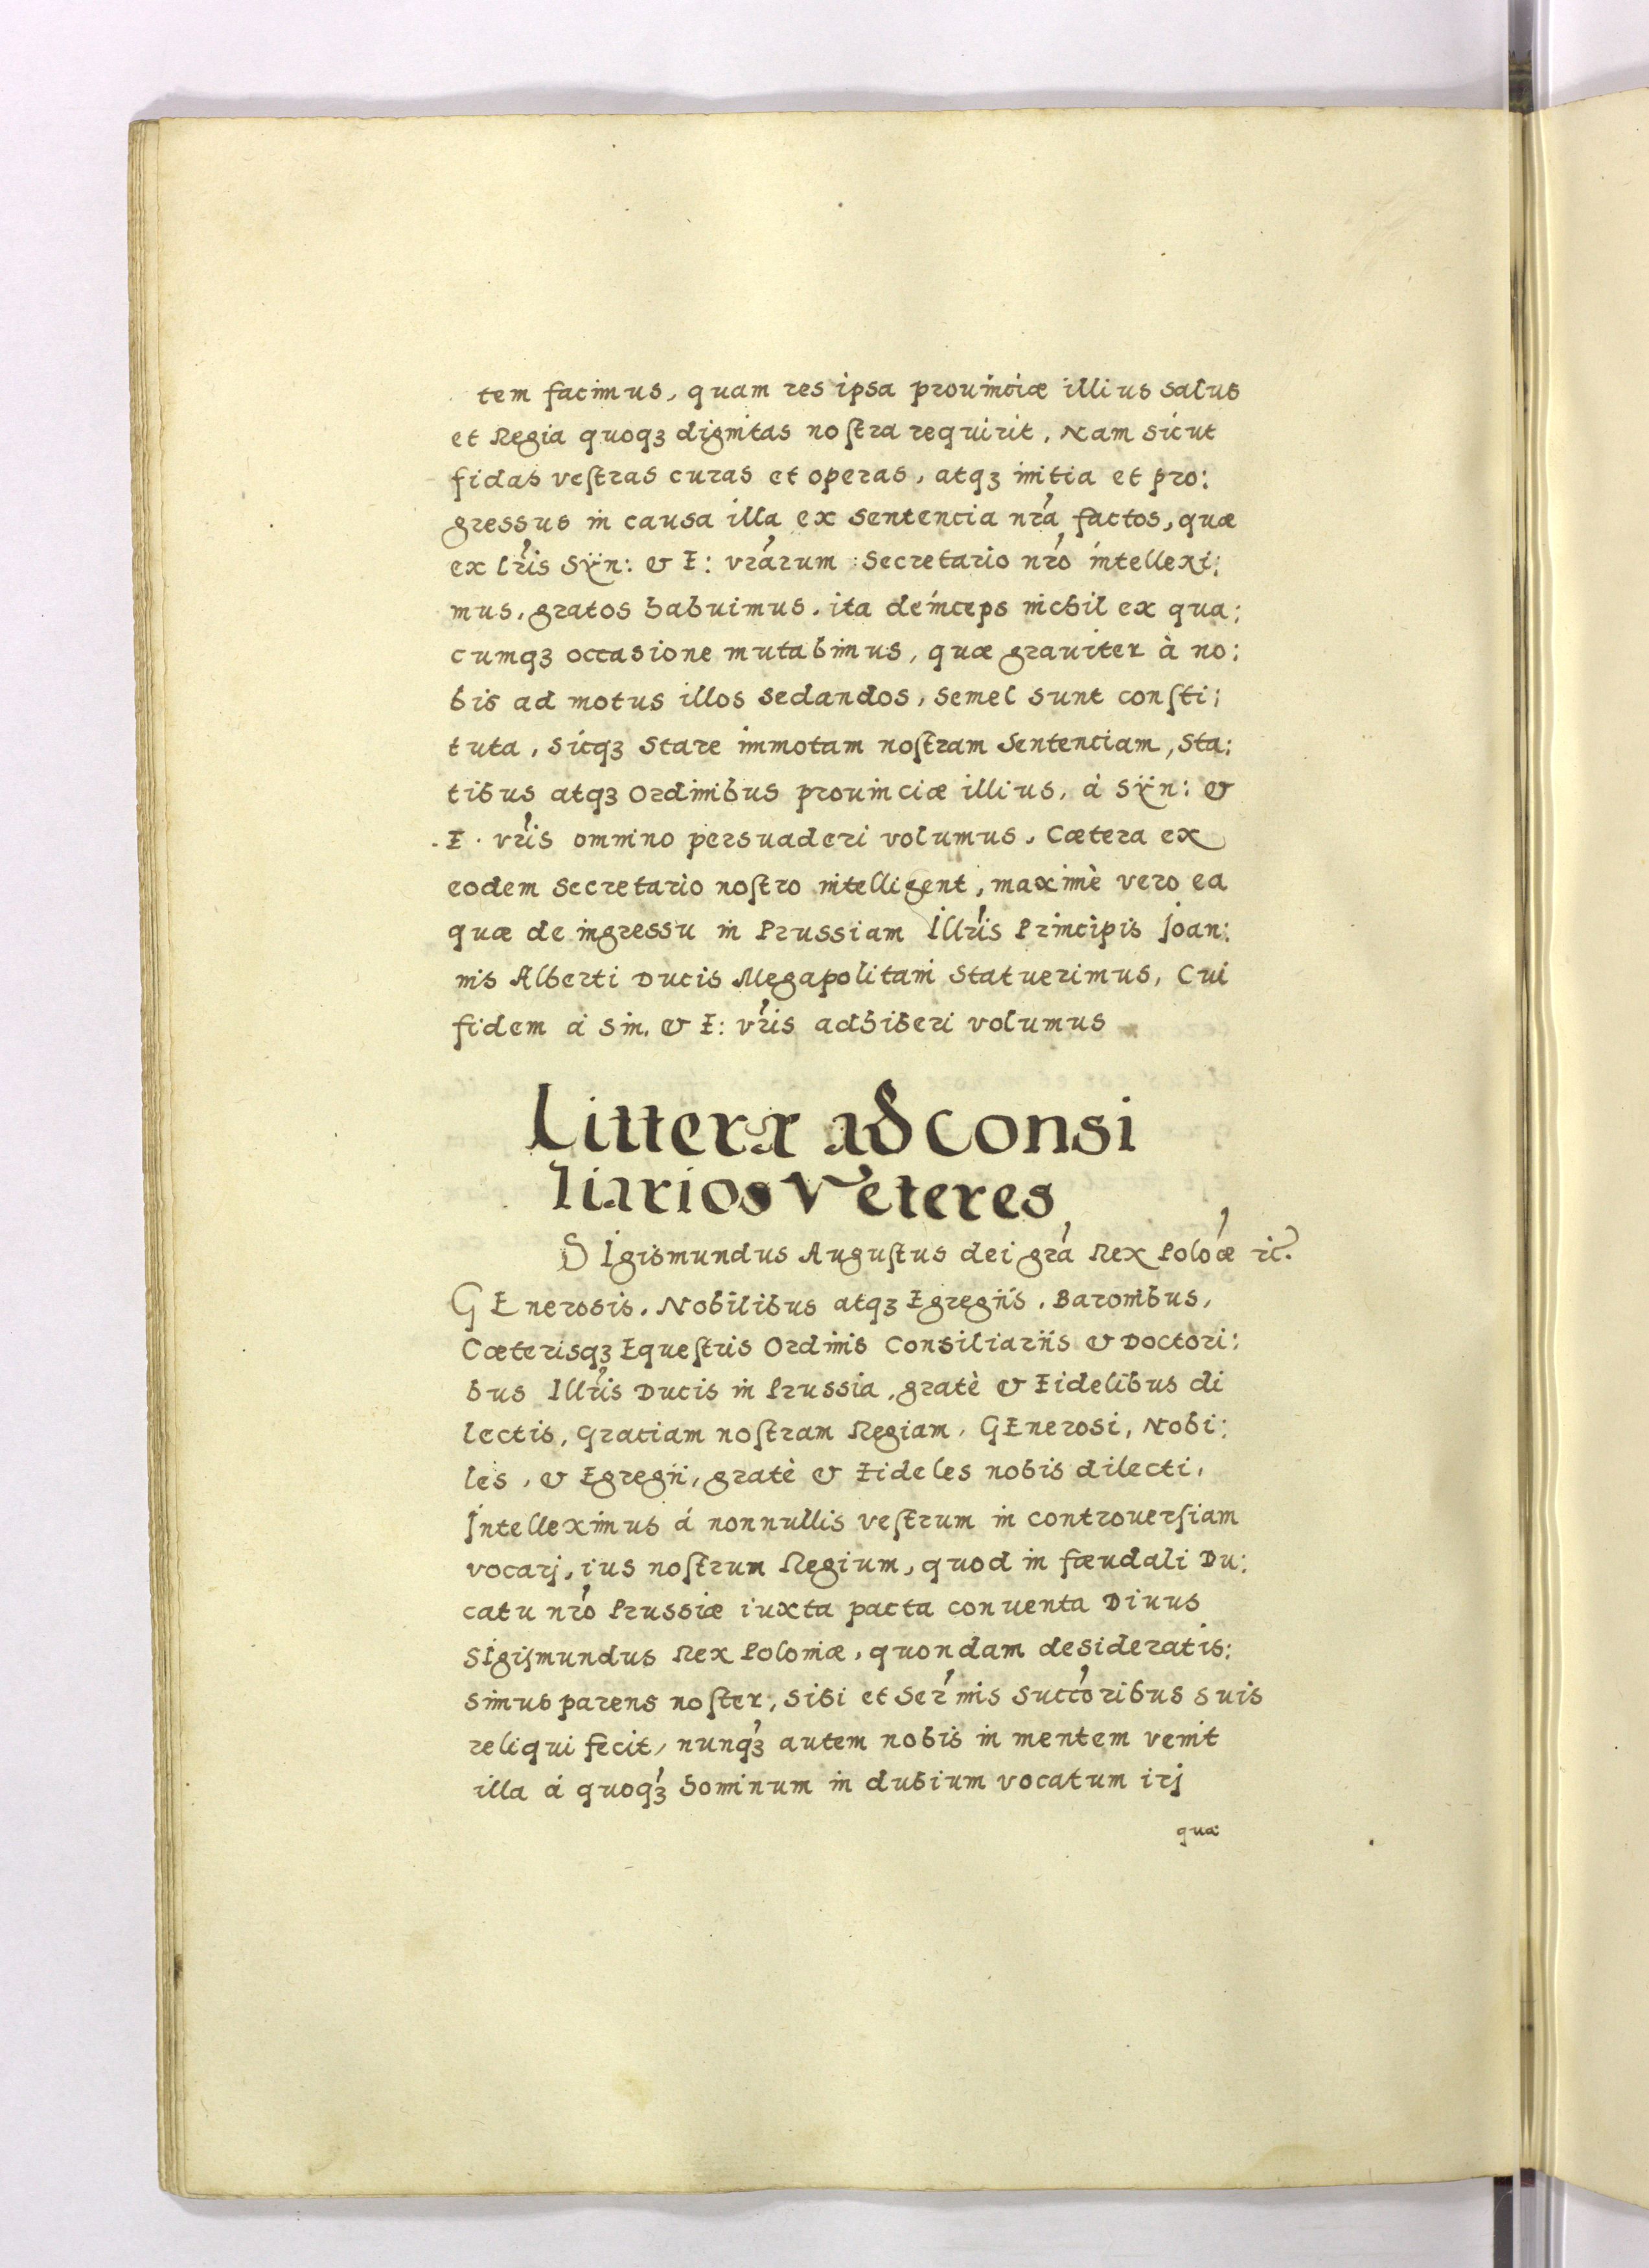 tem facimus, quam res ipsa prouinciæ illius salus
et Regia quoqꝫ dignitas noſtra requirit, Nam sicut
fidas veſtras curas et operas, atqꝫ initia et pro:
gressus in causa illa ex sentencia nr̃a factos, quæ
ex lr̃is Sÿn: & F: vr̃arum Secretario nr̃o intellexi:
mus, gratos habuimus, ita deinceps nichil ex qua:
cumqꝫ occasione mutabimus, quæ grauiter à no:
bis ad motus illos sedandos, semel sunt conſti:
tuta, sicqꝫ stare immotam noſtram sentenciam, Sta:
tibus atqꝫ Ordinibus prouinciæ illius, á Sÿn: &
F. vr̃is omnino persuaderi volumus, Cætera ex
eodem Secretario noſtro intelligent, maximè vero ea
quæ de ingressu in Prussiam Illr̃is Principis Joan:
nis Alberti Ducis Megapolitani Statuerimus, Cui
fidem á Sin. & F: vr̃is adhiberi volumus
Litteræ ad Consi
liarios Veteres
SIgismundus Auguſtus dei gr̃a Rex Polo̓æ ꝛc̃.
GEnerosis, Nobilibus atqꝫ Egregijs, Baronibus,
Cæterisqꝫ Equeſtris Ordinis Consiliarijs & Doctori:
bus Illr̃is Ducis in Prussia, gratè & Fidelibus di
lectis, Gratiam noſtram Regiam, GEnerosi, Nobi:
les, & Egregij, gratè & Fideles nobis dilecti,
Intelleximus á nonnullis veſtrum in controuerſiam
vocarj, ius noſtrum Regium, quod in fœudali Du:
catu nr̃o Prussiæ iuxta pacta conuenta Diuus
SIgiſmundus Rex Poloniæ, quondam desideratis:
simus parens noſter, sibi et Ser̃mis Succ̃oribus suis
reliqui fecit, nunqꝫ̓ autem nobis in mentem venit
illa á quoqꝫ̓ hominum in dubium vocatum irj
quæ